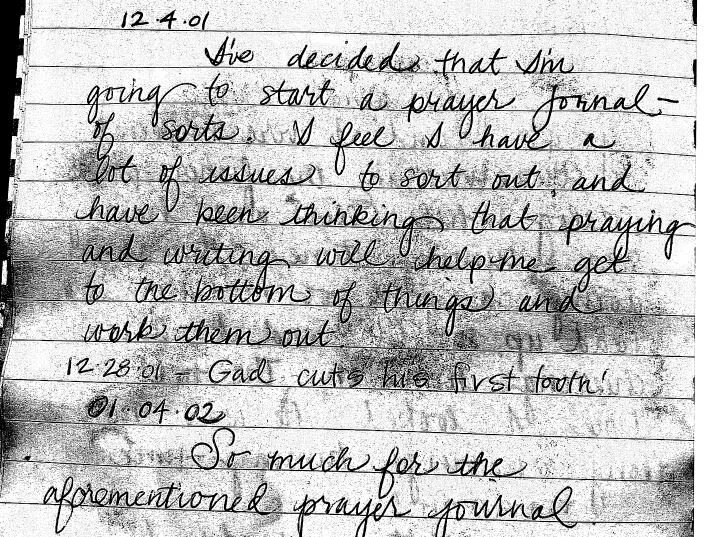 12.4.01
I've decided that I'm
going to start a prayer jornal-
of sorts. I feel I have a
lot of issues to sort out and
have been thinking that praying
and writing will help me get
to the bottom of things and
work them out.
12.28.01 - Gad cuts his first tooth!
01.04.02
So much for the
aforementioned prayer journal.